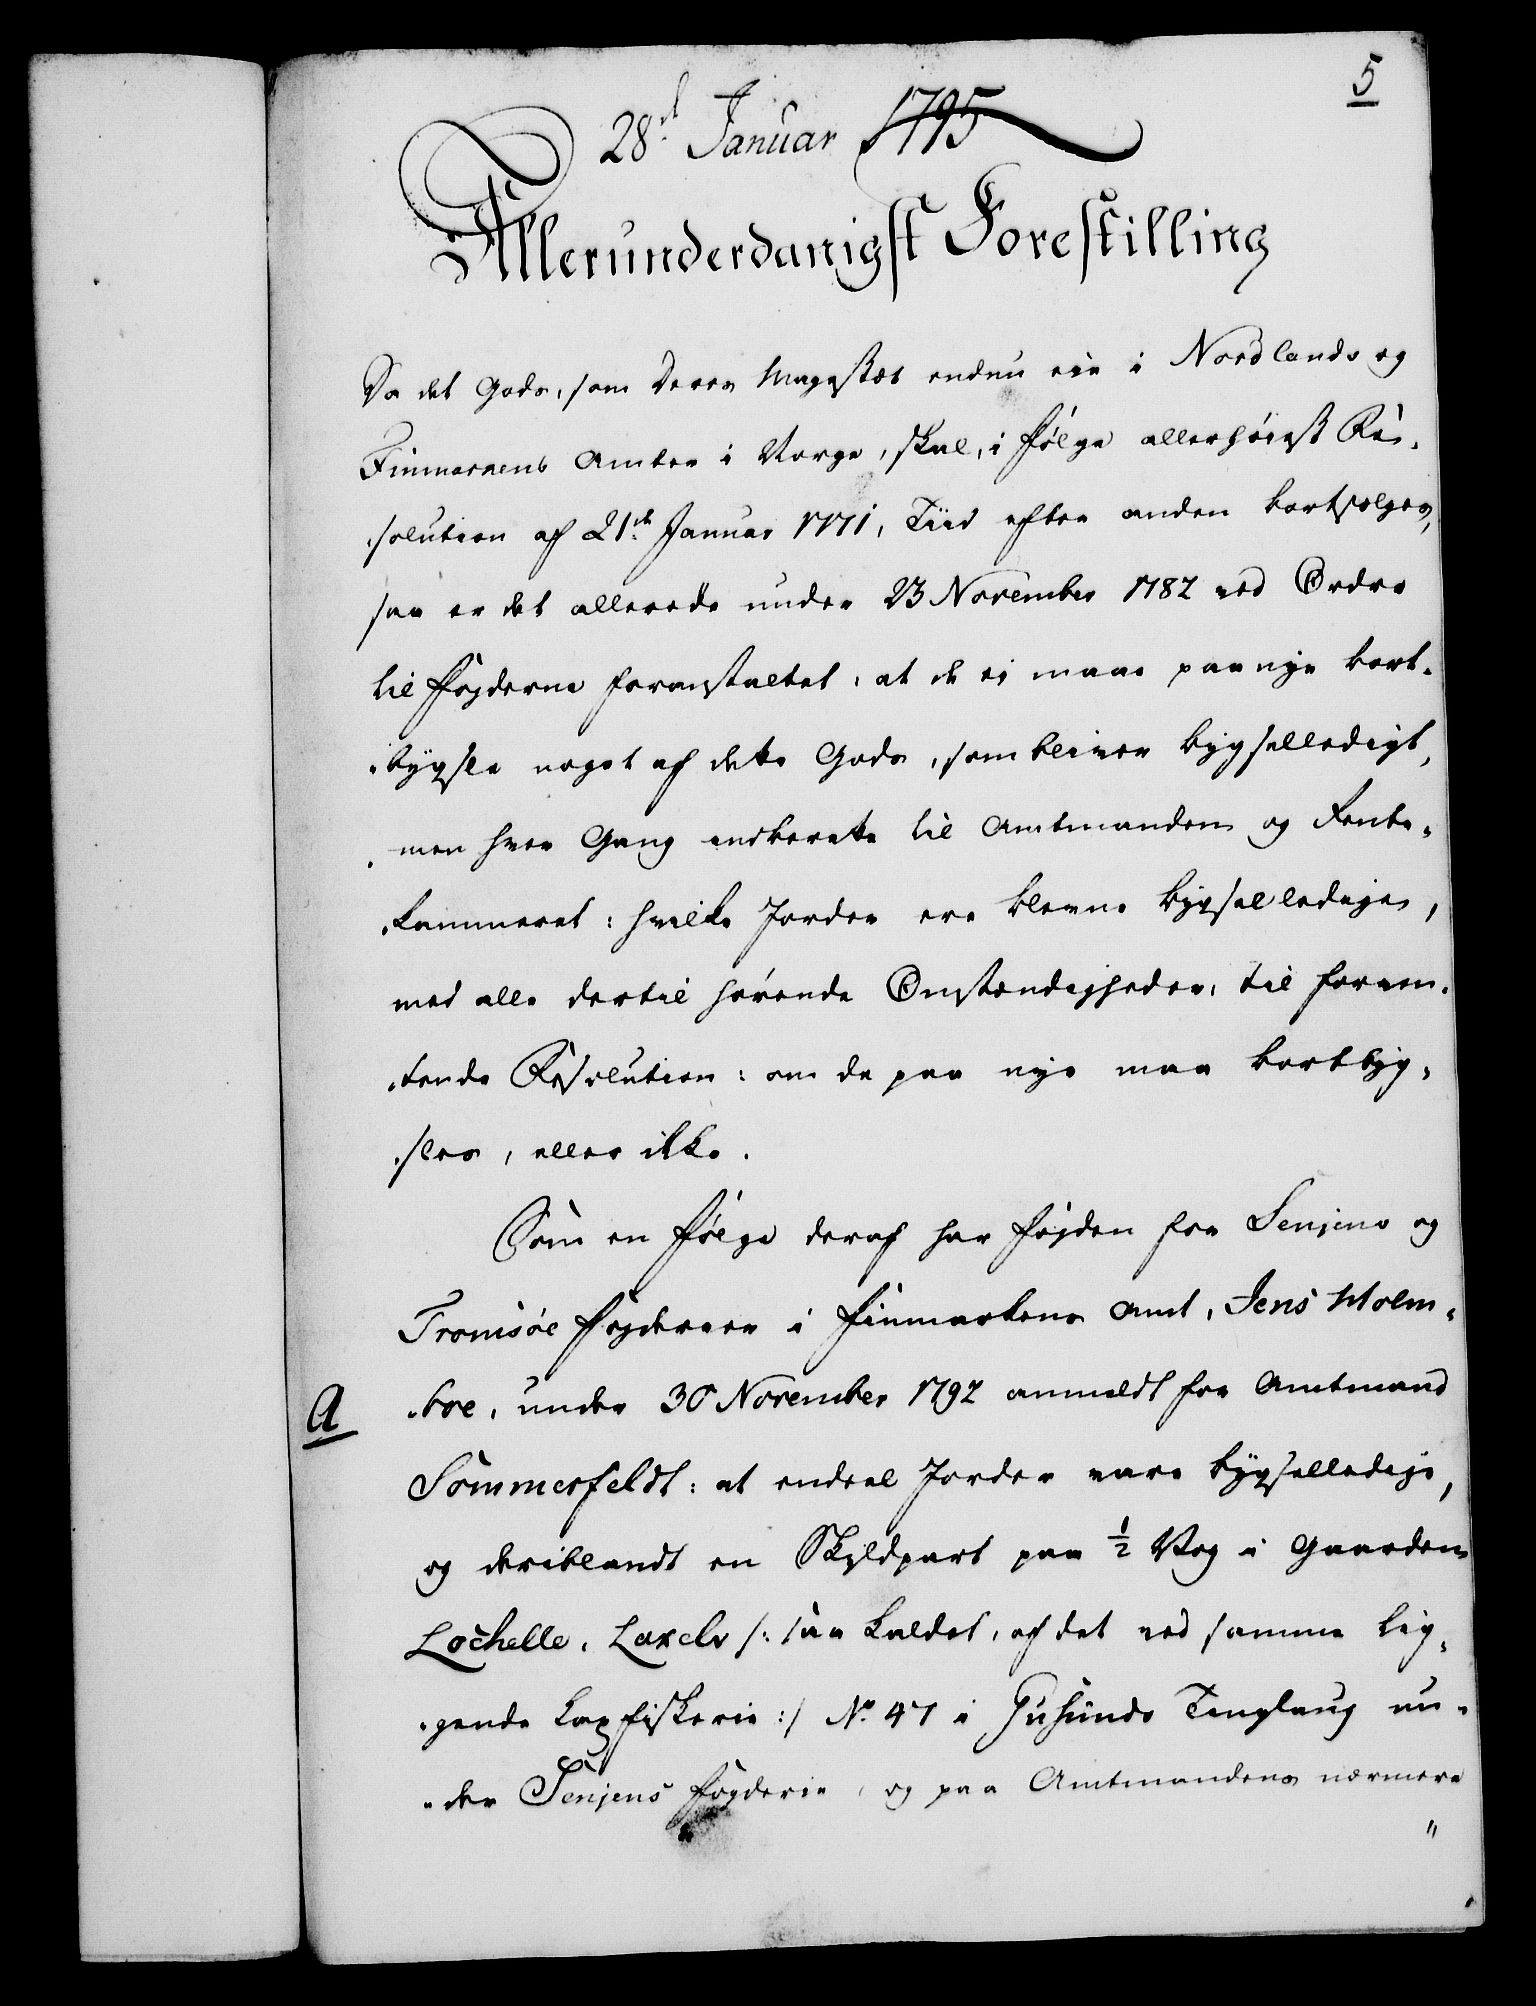 5
28d Januar 1795
Allerunderdanigst Forestilling
Da det Gods, som Deres Majestæt endnu eie i Nordlands og
Finmarkens Amter i Norge, skal, i Følge allerhøiest Re-
solution af 21de Januar 1771, Tiid efter anden bortsælges,
saa er det allerede under 23 November 1782 ved Ordre
til Fogderne foranstaltet, at de ei maae paa nye bort-
bygsle noget af dette Gods, som bliver bygselledigt,
men hver Gang indberette til Amtmanden og Rente-
kammeret: hvilke Jorder ere blevne bygselledige,
med alle dertil hørende Omstændigheder, til forven-
tende Resolution: om de paa nye maa bortbyg-
sles, eller ikke.
Som en Følge deraf har Fogden for Senjens og
Tromsøe Fogderier i Finmarkens Amt, Jens Holm-
A
boe, under 30 November 1792 anmeldt for Amtmand
Sommerfeldt: at endeel Jorder vare bygselledige,
og deriblandt en Skyldpart paa ½ Vog i Gaarden
Lochelle, Laxelv /: saa kaldet, af det ved samme lig-
gende Laxfiskerie :/ No. 47 i Gusunds Tinglaug un-
der Senjens Fogderie, og paa Amtmandens nærmere
"